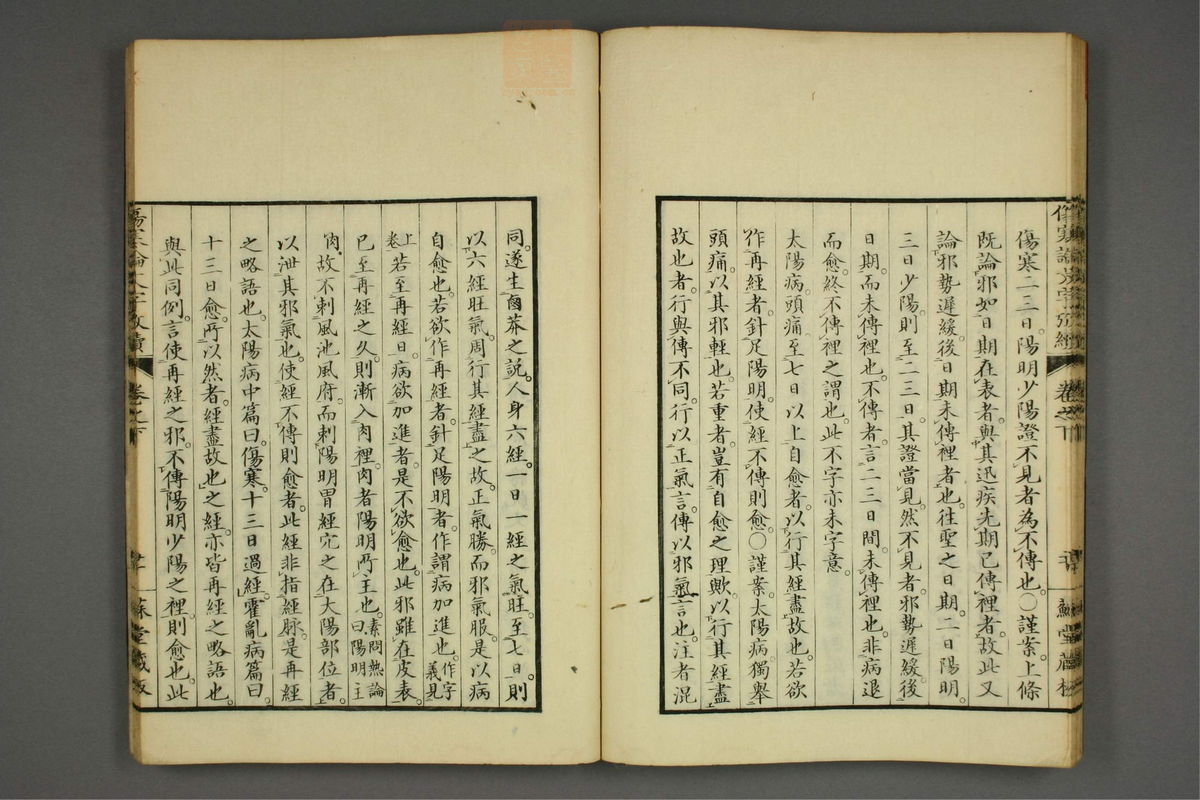 傷寒二三日。陽明少陽證不見者為不傳也。〇謹案。上條
既論邪如日期在表者。與其迅疾先期已傳裡者。故此又
論邪勢遲緩。後日期未傳裡者也。往聖之日期。二日陽明。
三日少陽。則至二三日。其證當見。然不見者。邪勢遲緩。後
日期。而未傳裡也。不傳者。言二三日間。未傳裡也。非病退
而愈。終不傳裡之謂也。此不字亦未字意。
太陽病。頭痛至七日以上自愈者。以行其經盡故也。若欲
作再經者。針足陽明。使經不傳則愈。〇謹案。太陽病。獨舉
頭痛。以其邪輕也。若重者。豈有自愈之理歟。以行其經盡
故也者。行與傳不同。行以正氣言。傳以邪氣言也。注者混
同。遂生鹵莽之說。人身六經。一日一經之氣旺。至七日。則
以六經旺氣。周行其經盡之故。正氣勝。而邪氣服。是以病
自愈也。若欲作再經者。針足陽明者。作謂病加進也。作字義見
上卷若至再經日。病欲加進者。是不欲愈也。此邪雖在皮表。
已至再經之久。則漸入肉裡。肉者陽明所主也。素問熱論曰陽明主
肉。故不刺風池風府。而刺陽明胃經穴之在太陽部位者。
以泄其邪氣也。使經不傳則愈者。此經非指經脉。是再經
之略語也。太陽病中篇曰。傷寒十三日過經。霍亂病篇曰。
十三日愈。所以然者。經盡故也。之經。亦皆再經之略語也。
與此同例。言使再經之邪。不傳陽明少陽之裡。則愈也。此
卷之下